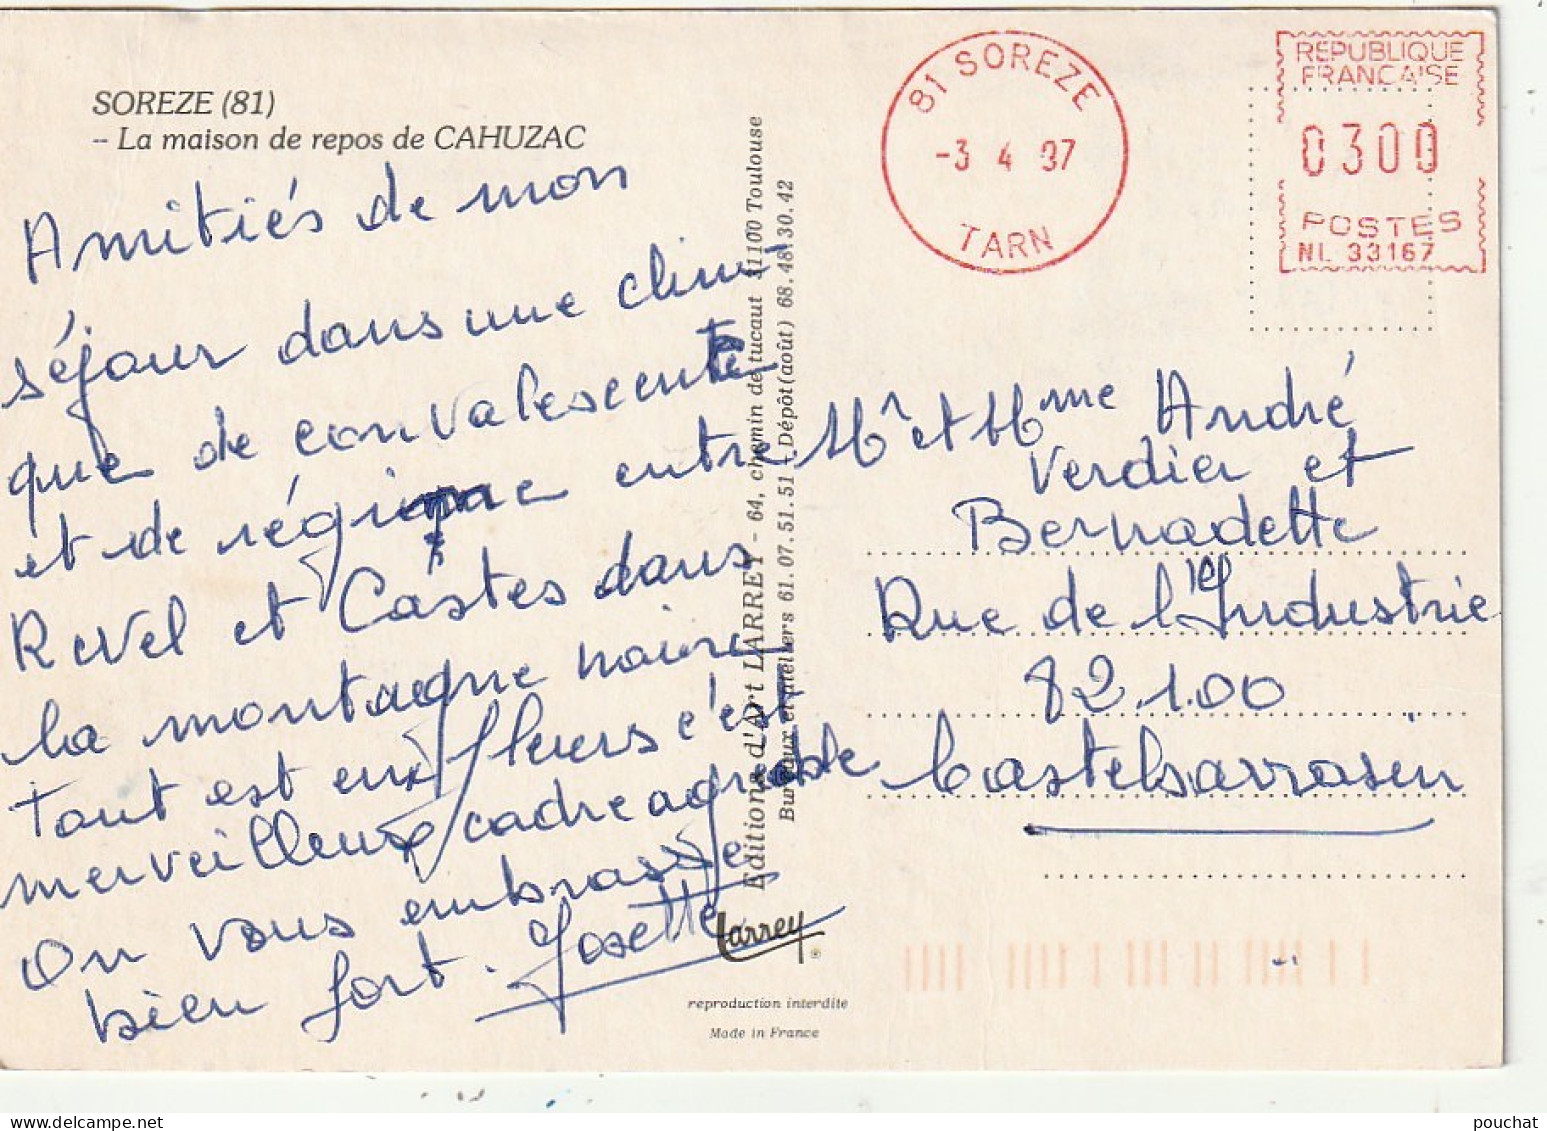 SOREZE (81)
-- La maison de repos de CAHUZAC
Amitiés de mon
séjour dans une clini
que de convalescente
et de régime entre
Revel et Castes dans
la montagne noire
Tout est en fleurs c'est
merveilleux cadre agreable
On vous embrasse
bien fort. Josette
Editions d'Art LARREY - 64, chemin de tucaut 31100 Toulouse
Bureaux et ateliers 61.07.51.51 + Dépôt (août) 68.48.30.42
Larrey
reproduction interdite
Made in France
81 SOREZE
-3 4 97
TARN
REPUBLIQUE
FRANCAISE
0300
POSTES
NL 33167
Mr et Mme André
Verdier et
Bernadette
Rue de l'Industrie
82100
Castelsarrasin
pouchat